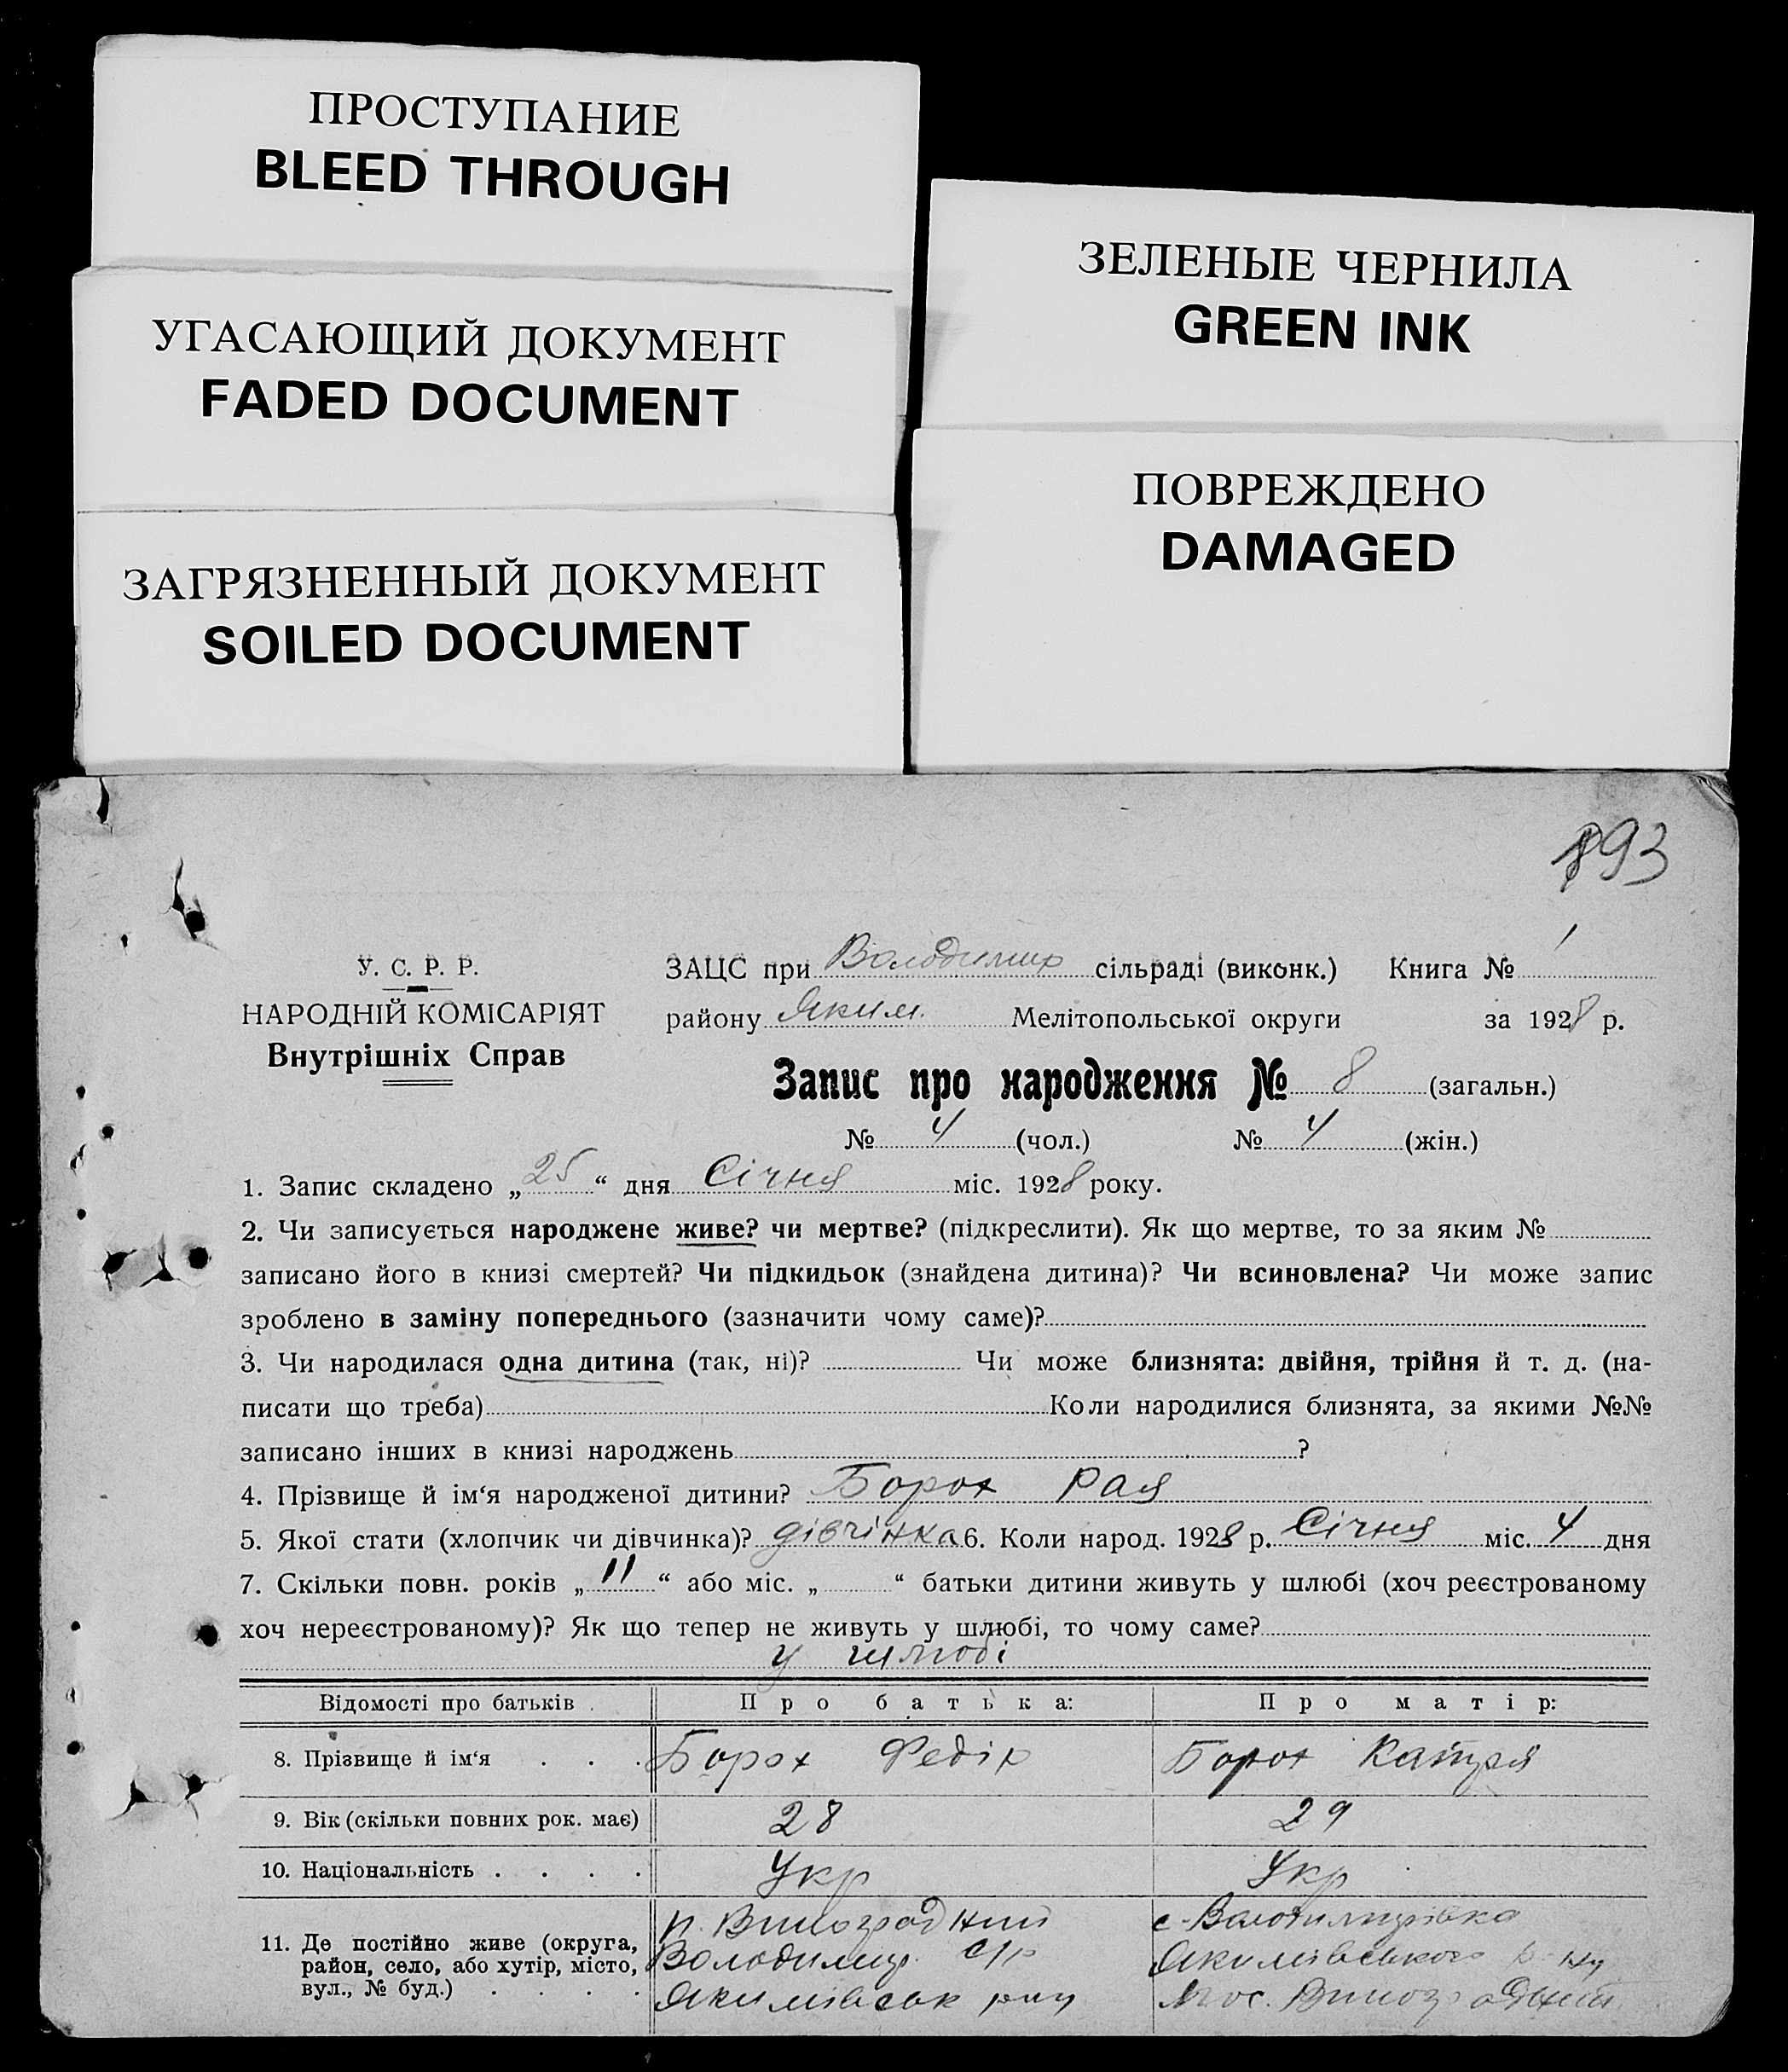 ПРОСТУПАНИЕ
BLEED THROUGH
ЗЕЛЕНЫЕ ЧЕРНИЛА
GREEN INK
УГАСАЮЩИЙ ДОКУМЕНТ
FADED DOCUMENT
ПОВРЕЖДЕНО
DAMAGED
ЗАГРЯЗНЕННЫЙ ДОКУМЕНТ
SOILED DOCUMENT
93
У. С. Р. Р.
НАРОДНІЙ КОМІСАРІЯТ
Внутрішніх Справ
ЗАЦС при Володимир сільраді (виконк.) Книга № 1
району Яким. Мелітопольської округи за 1928 р.
Запис про народження № 8 (загальн.)
№ 4 (чол.) № 4 (жін.)
1. Запис складено „25“ дня Січня міс. 1928 року.
2. Чи записується народжене живе? чи мертве? (підкреслити). Як що мертве, то за яким №
записано його в книзі смертей? Чи підкидьок (знайдена дитина)? Чи всиновлена? Чи може запис
зроблено в заміну попереднього (зазначити чому саме)?
3. Чи народилася одна дитина (так, ні)? Чи може близнята: двійня, трійня й т. д. (на-
писати що треба) Коли народилися близнята, за якими №№
записано інших в книзі народжень ?
4. Прізвище й ім‘я народженої дитини? Борох Рая
5. Якої стати (хлопчик чи дівчинка)? дівчінка 6. Коли народ. 1928 р. Січня міс. 4 дня
7. Скільки повн. років „11“ або міс. „ “ батьки дитини живуть у шлюбі (хоч реєстрованому
хоч нереєстрованому)? Як що тепер не живуть у шлюбі, то чому саме?
у шлюбі
Відомості про батьків Про батька: Про матір:
8. Прізвище й ім‘я . . . Борох Федір Борох Катря
9. Вік (скільки повних рок. має) 28 29
10. Національність . . . . Укр Укр
11. Де постійно живе (округа, район, село, або хутір, місто, вул., № буд.) . . . .
п. Виноградний
Володимир. с/р
Якимівськ рну
с. Володимирівка
Якимівського р-ну
пос. Виноградний